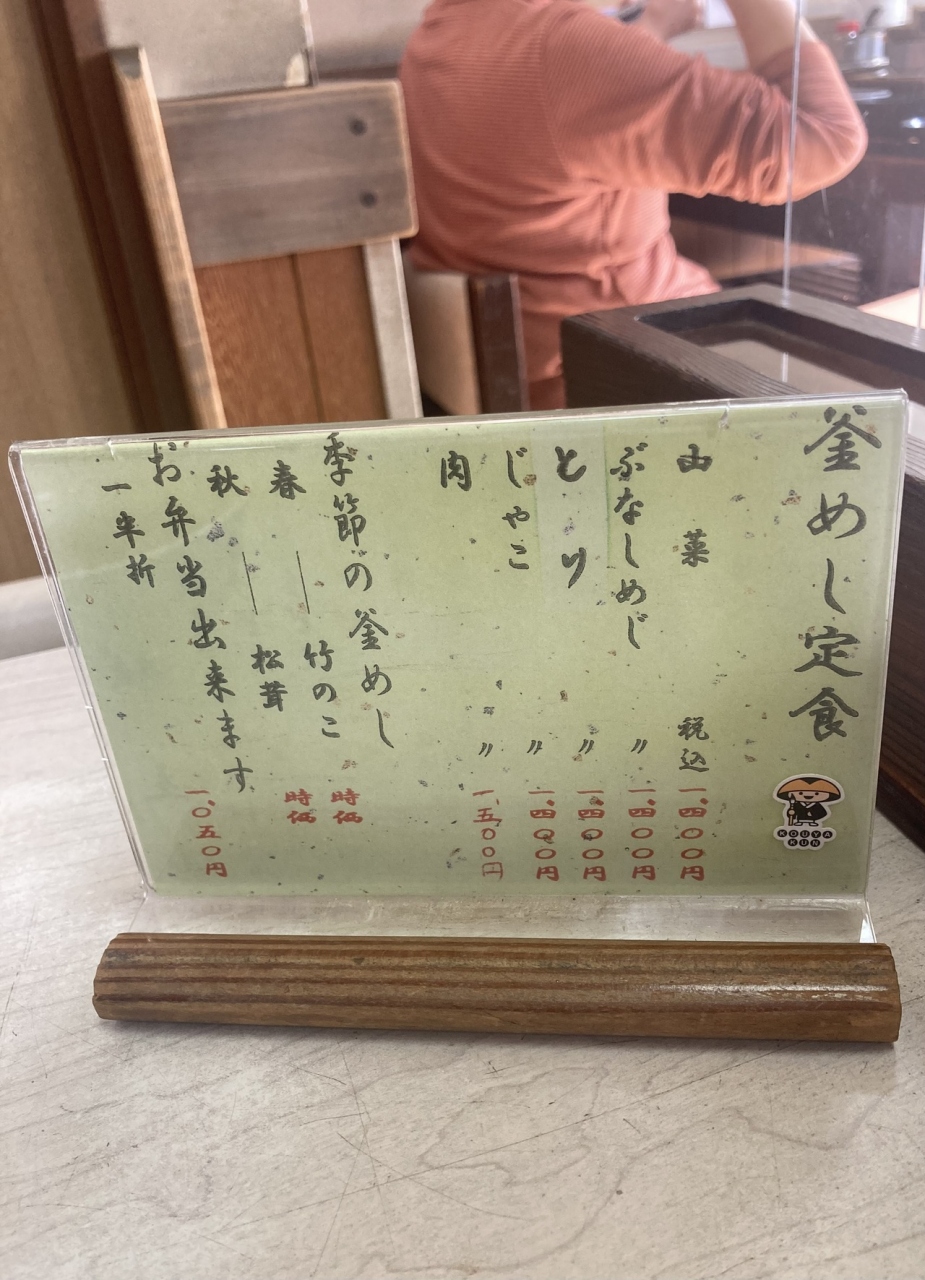 釜めし定食
KOUYA
KUN
山菜 税込 一、四〇〇円
ぶなしめじ 〃 一、四〇〇円
とり 〃 一、四〇〇円
じゃこ 〃 一、四〇〇円
肉 〃 一、五〇〇円
季節の釜めし
春 ― 竹のこ 時価
秋 ― 松茸 時価
お弁当出来ます
一半折 一、〇五〇円